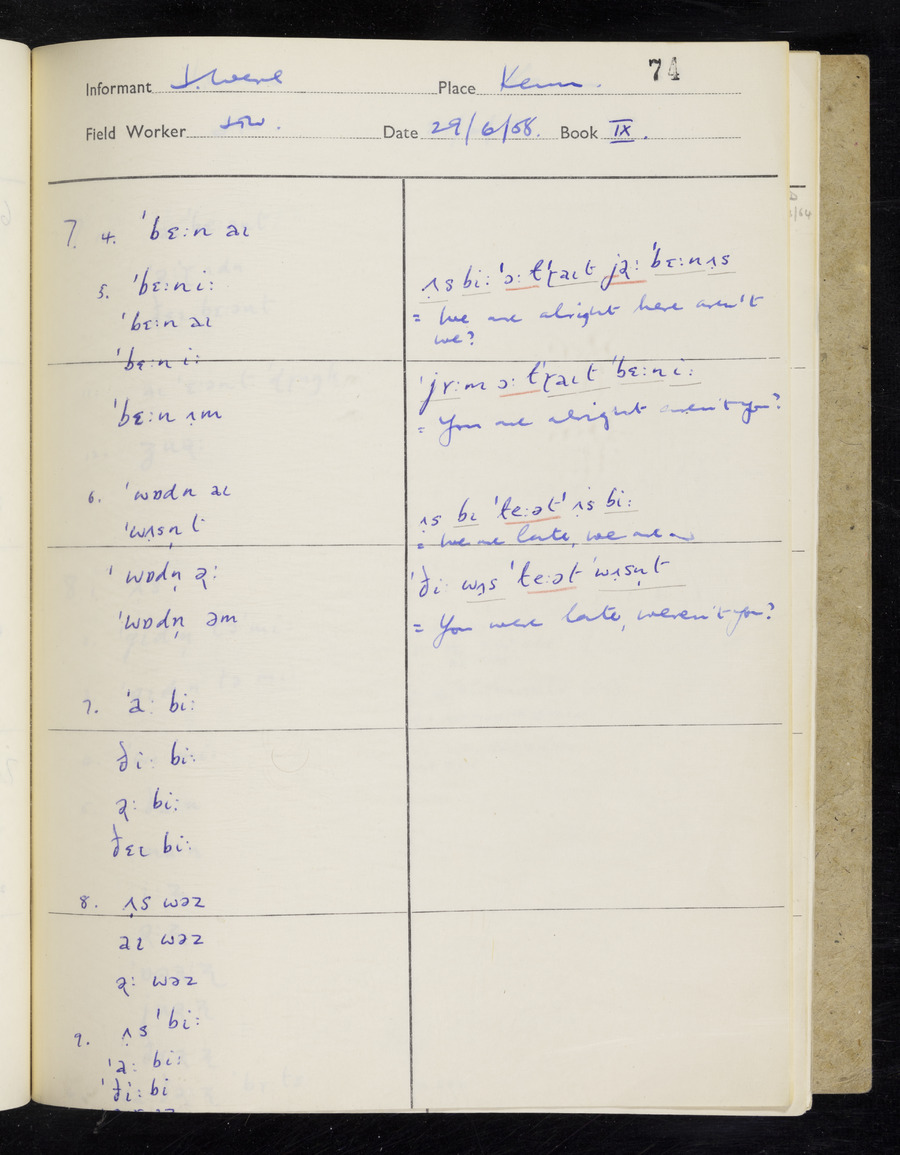 74
Informant
Place Kenn.
Field Worker Date 29/6/58. Book IX.
7. 4. ˈbɛːn aɪ
5. ˈbɛːn iː
ˈbɛːn aɪ
ˈbɛːn iː
ˈbɛːn əm
6. ˈwɒdn aɪ
ˈwʌsn̩t
ˈwɒdn̩ əː
ˈwɒdn̩ əm
7. ˈaː biː
ðiː biː
əː biː
ðɛɪ biː
8. ʌs wəz
aɪ wəz
əː wəz
9. ʌs ˈbiː
ˈaː biː
ˈðiː bi
ʌs biː ˈɔːtˈraɪt jəː ˈbɛːn ʌs
= We are alright here aren't
we?
= You are alright aren't you?
ʌs bɪ ˈteːətˈ ʌs biː
= We are late, we are
ˈðiː wʌs ˈteːət ˈwʌsn̩t
= You were late, weren't you?